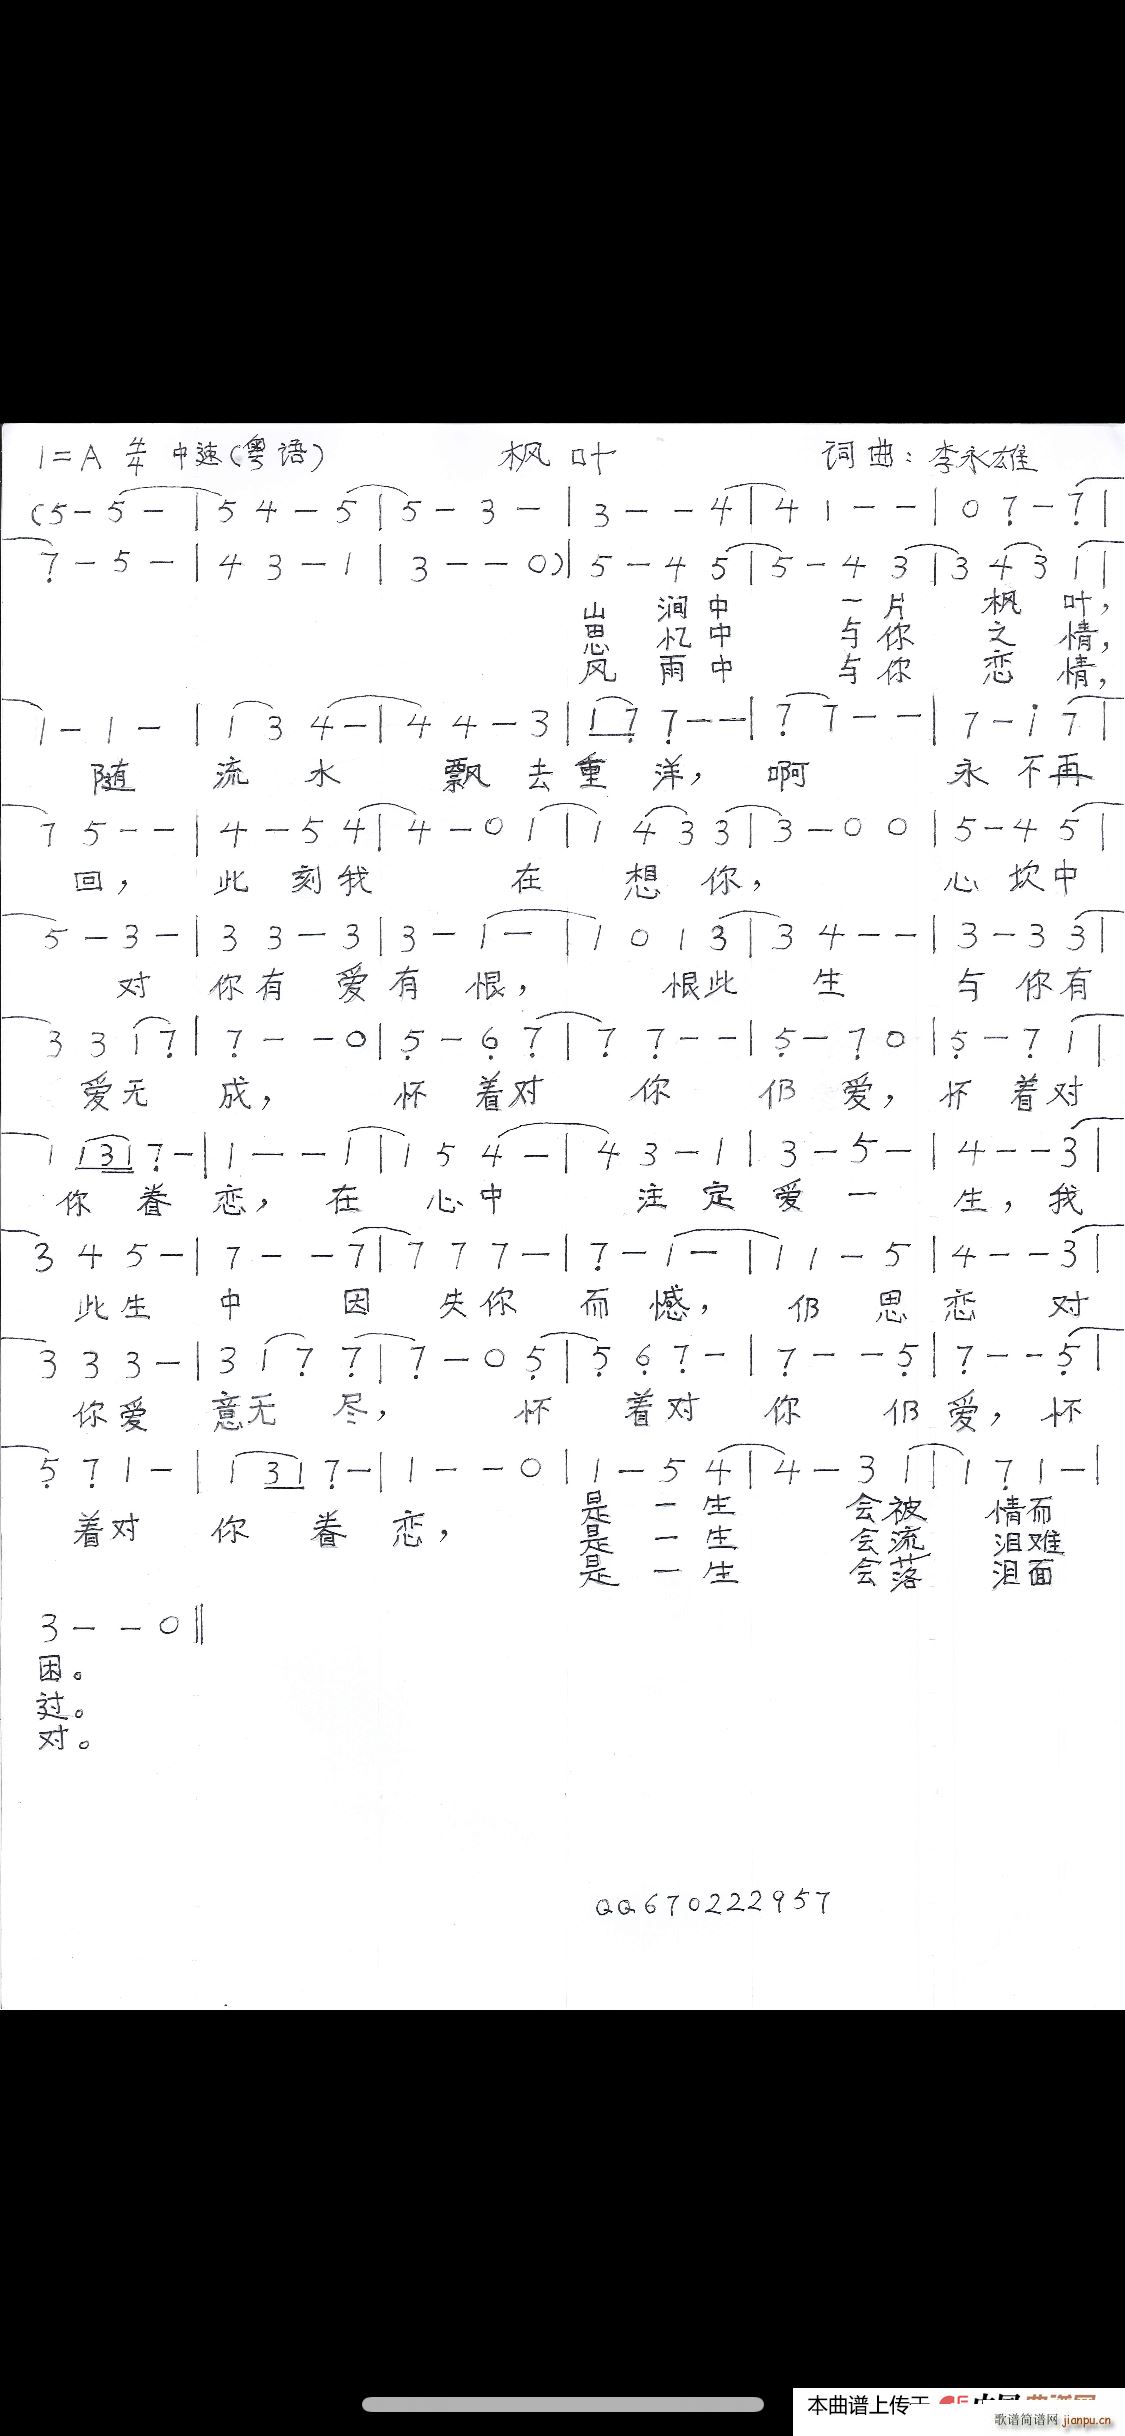 1=A 4/4 中速(粤语) 枫叶 词曲:李永雄
(5 - 5 - | 5 4 - 5 | 5 - 3 - | 3 - - 4 | 4 1 - - | 0 7̣ - 7̣ |
7̣ - 5 - | 4 3 - 1 | 3 - - 0) | 5 - 4 5 | 5 - 4 3 | 3 4 3 1 |
山 涧 中 一 片 枫 叶,
思 忆 中 与 你 之 情,
风 雨 中 与 你 恋 情,
1 - 1 - | 1 3 4 - | 4 4 - 3 | 1 7̣ 7̣ - - | 7̣ 7 - - | 7 - i̇ 7 |
随 流 水 飘 去 重 洋, 啊 永 不 再
7 5 - - | 4 - 5 4 | 4 - 0 1 | 1 4 3 3 | 3 - 0 0 | 5 - 4 5 |
回, 此 刻 我 在 想 你, 心 坎 中
5 - 3 - | 3 3 - 3 | 3 - 1 - | 1 0 1 3 | 3 4 - - | 3 - 3 3 |
对 你 有 爱 有 恨, 恨 此 生 与 你 有
3 3 1 7̣ | 7̣ - - 0 | 5̣ - 6̣ 7̣ | 7̣ 7̣ - - | 5̣ - 7̣ 0 | 5̣ - 7̣ 1 |
爱 无 成, 怀 着 对 你 仍 爱, 怀 着 对
1 1 3 1 7̣ - | 1 - - 1 | 1 5 4 - | 4 3 - 1 | 3 - 5 - | 4 - - 3 |
你 眷 恋, 在 心 中 注 定 爱 一 生, 我
3 4 5 - | 7 - - 7 | 7 7 7 - | 7̣ - 1 - | 1 1 - 5 | 4 - - 3 |
此 生 中 因 失 你 而 憾, 仍 思 恋 对
3 3 3 - | 3 1 7̣ 7̣ | 7̣ - 0 5̣ | 5̣ 6̣ 7̣ - | 7̣ - - 5̣ | 7̣ - - 5̣ |
你 爱 意 无 尽, 怀 着 对 你 仍 爱, 怀
5̣ 7̣ 1 - | 1 3 1 7̣ - | 1 - - 0 | 1 - 5 4 | 4 - 3 1 | 1 7̣ 1 - |
着 对 你 眷 恋, 是 一 生 会 被 情 而
是 一 生 会 流 泪 难
是 一 生 会 落 泪 面
3 - - 0 ‖
困。
过。
对。
QQ670222957
本曲谱上传于
歌谱简谱网 jianpu.cn